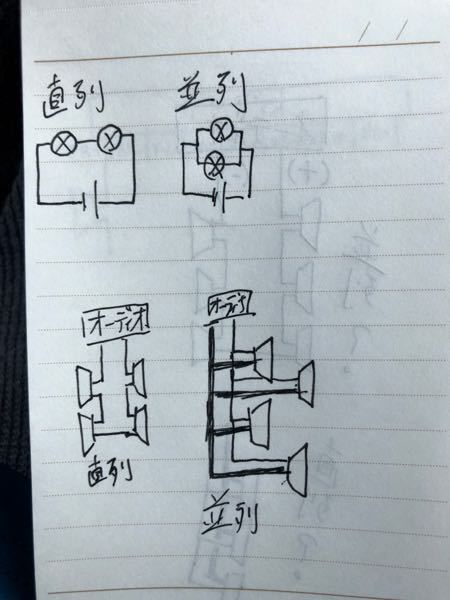 直列
並列
オーディオ
オーディオ
直列
並列